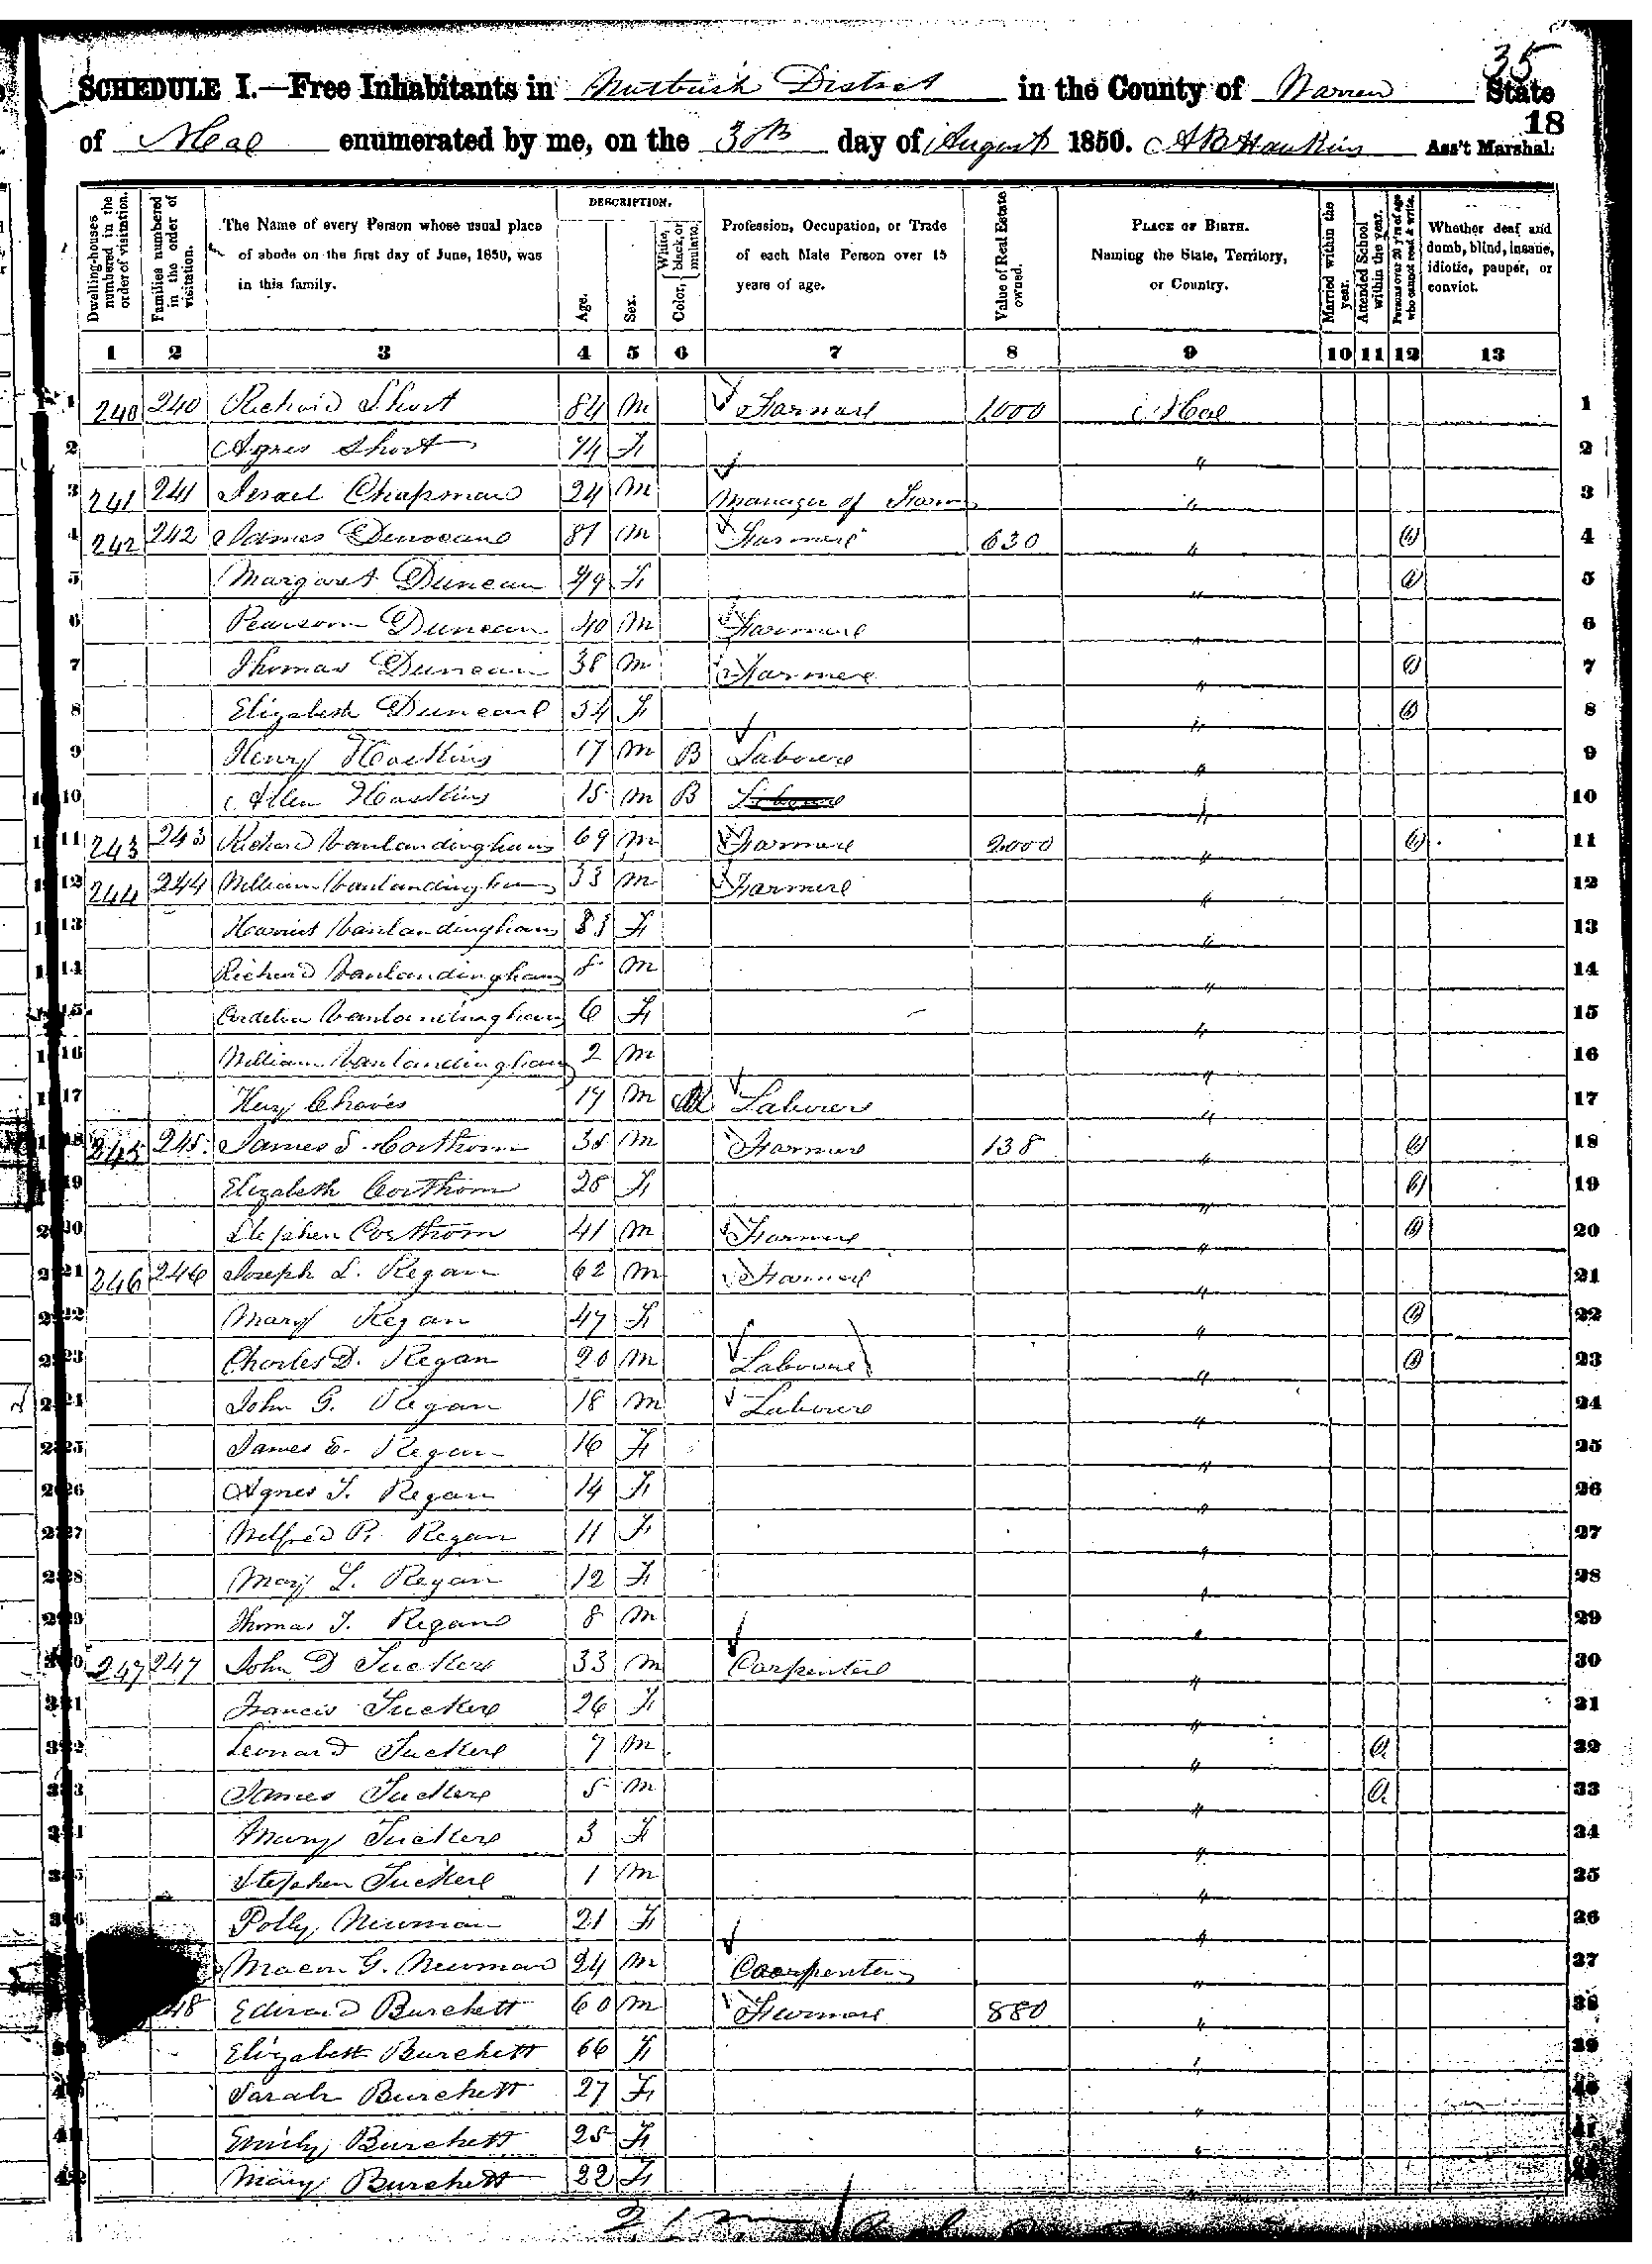 35
SCHEDULE I.—Free Inhabitants in Nutbush District in the County of Warren State
18
of enumerated by me, on the 30th day of August 1850. A B Hawkins Ass't Marshal.
Dwelling-houses numbered in the order of visitation.
Families numbered in the order of visitation.
The Name of every Person whose usual place of abode on the first day of June, 1850, was in this family.
DESCRIPTION.
Age.
Sex.
Color, { White, black, or mulatto.
Profession, Occupation, or Trade of each Male Person over 15 years of age.
Value of Real Estate owned.
PLACE OF BIRTH. Naming the State, Territory, or Country.
Married within the year.
Attended School within the year.
Persons over 20 y'rs of age who cannot read & write.
Whether deaf and dumb, blind, insane, idiotic, pauper, or convict.
1 2 3 4 5 6 7 8 9 10 11 12 13
1 240 240 Richard Short 84 M Farmer 1000 1
2 Agnes Short 74 F " 2
3 241 241 Israel Chapman 24 M Manager of Farm " 3
4 242 242 James Duncan 81 M Farmer 630 " 4
5 Margaret Duncan 79 F " 5
6 Duncan 40 M Farmer " 6
7 Thomas Duncan 38 M Farmer " 7
8 Elizabeth Duncan 34 F " 8
9 Henry 17 M B Labourer " 9
10 Allen 15 M B " 10
11 243 243 Richard Vanlandingham 69 M Farmer 2000 " 11
12 244 244 William Vanlandingham 33 M Farmer " 12
13 Harriet Vanlandingham F " 13
14 Richard Vanlandingham 8 M " 14
15 Cordelia Vanlandingham 6 F " 15
16 William Vanlandingham 2 M " 16
17 Chaves M M Laborer " 17
18 245 245 James S. M Farmer 138 " 18
19 Elizabeth 28 F " 19
20 Stephen 41 M Farmer " 20
21 246 246 Joseph L. Regan 62 M Farmer " 21
22 Mary Regan 47 F " 22
23 Charles D. Regan 20 M Labourer " 23
24 John G. Regan 18 M Labourer " 24
25 James E. Regan 16 F " 25
26 Agnes T. Regan 14 F " 26
27 R. Regan 11 F " 27
28 Mary L. Regan 12 F " 28
29 Thomas T. Regan 8 M " 29
30 247 247 John D Tucker 33 M Carpenter " 30
31 Francis Tucker 26 F " 31
32 Leonard Tucker 7 M " 32
33 James Tucker 5 M " 33
34 Mary Tucker 3 F " 34
35 Stephen Tucker 1 M " 35
36 Polly Newman 21 F " 36
Macon G. Newman 24 M Carpenter " 37
48 Edward Burchett 60 M Farmer 880 " 38
Elizabeth Burchett 66 F " 39
Sarah Burchett 27 F " 40
Emily Burchett 25 F " 41
Mary Burchett 22 F "